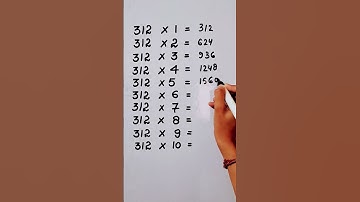 312 × 1 = 312
312 × 2 = 624
312 × 3 = 936
312 × 4 = 1248
312 × 5 = 1560
312 × 6 =
312 × 7 =
312 × 8 =
312 × 9 =
312 × 10 =